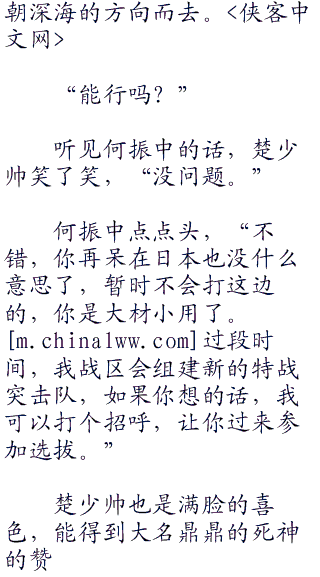 朝深海的方向而去。<侠客中
文网>
“能行吗？”
听见何振中的话，楚少
帅笑了笑，“没问题。”
何振中点点头，“不
错，你再呆在日本也没什么
意思了，暂时不会打这边
的，你是大材小用了。
[m.china1ww.com]过段时
间，我战区会组建新的特战
突击队，如果你想的话，我
可以打个招呼，让你过来参
加选拔。”
楚少帅也是满脸的喜
色，能得到大名鼎鼎的死神
的赞